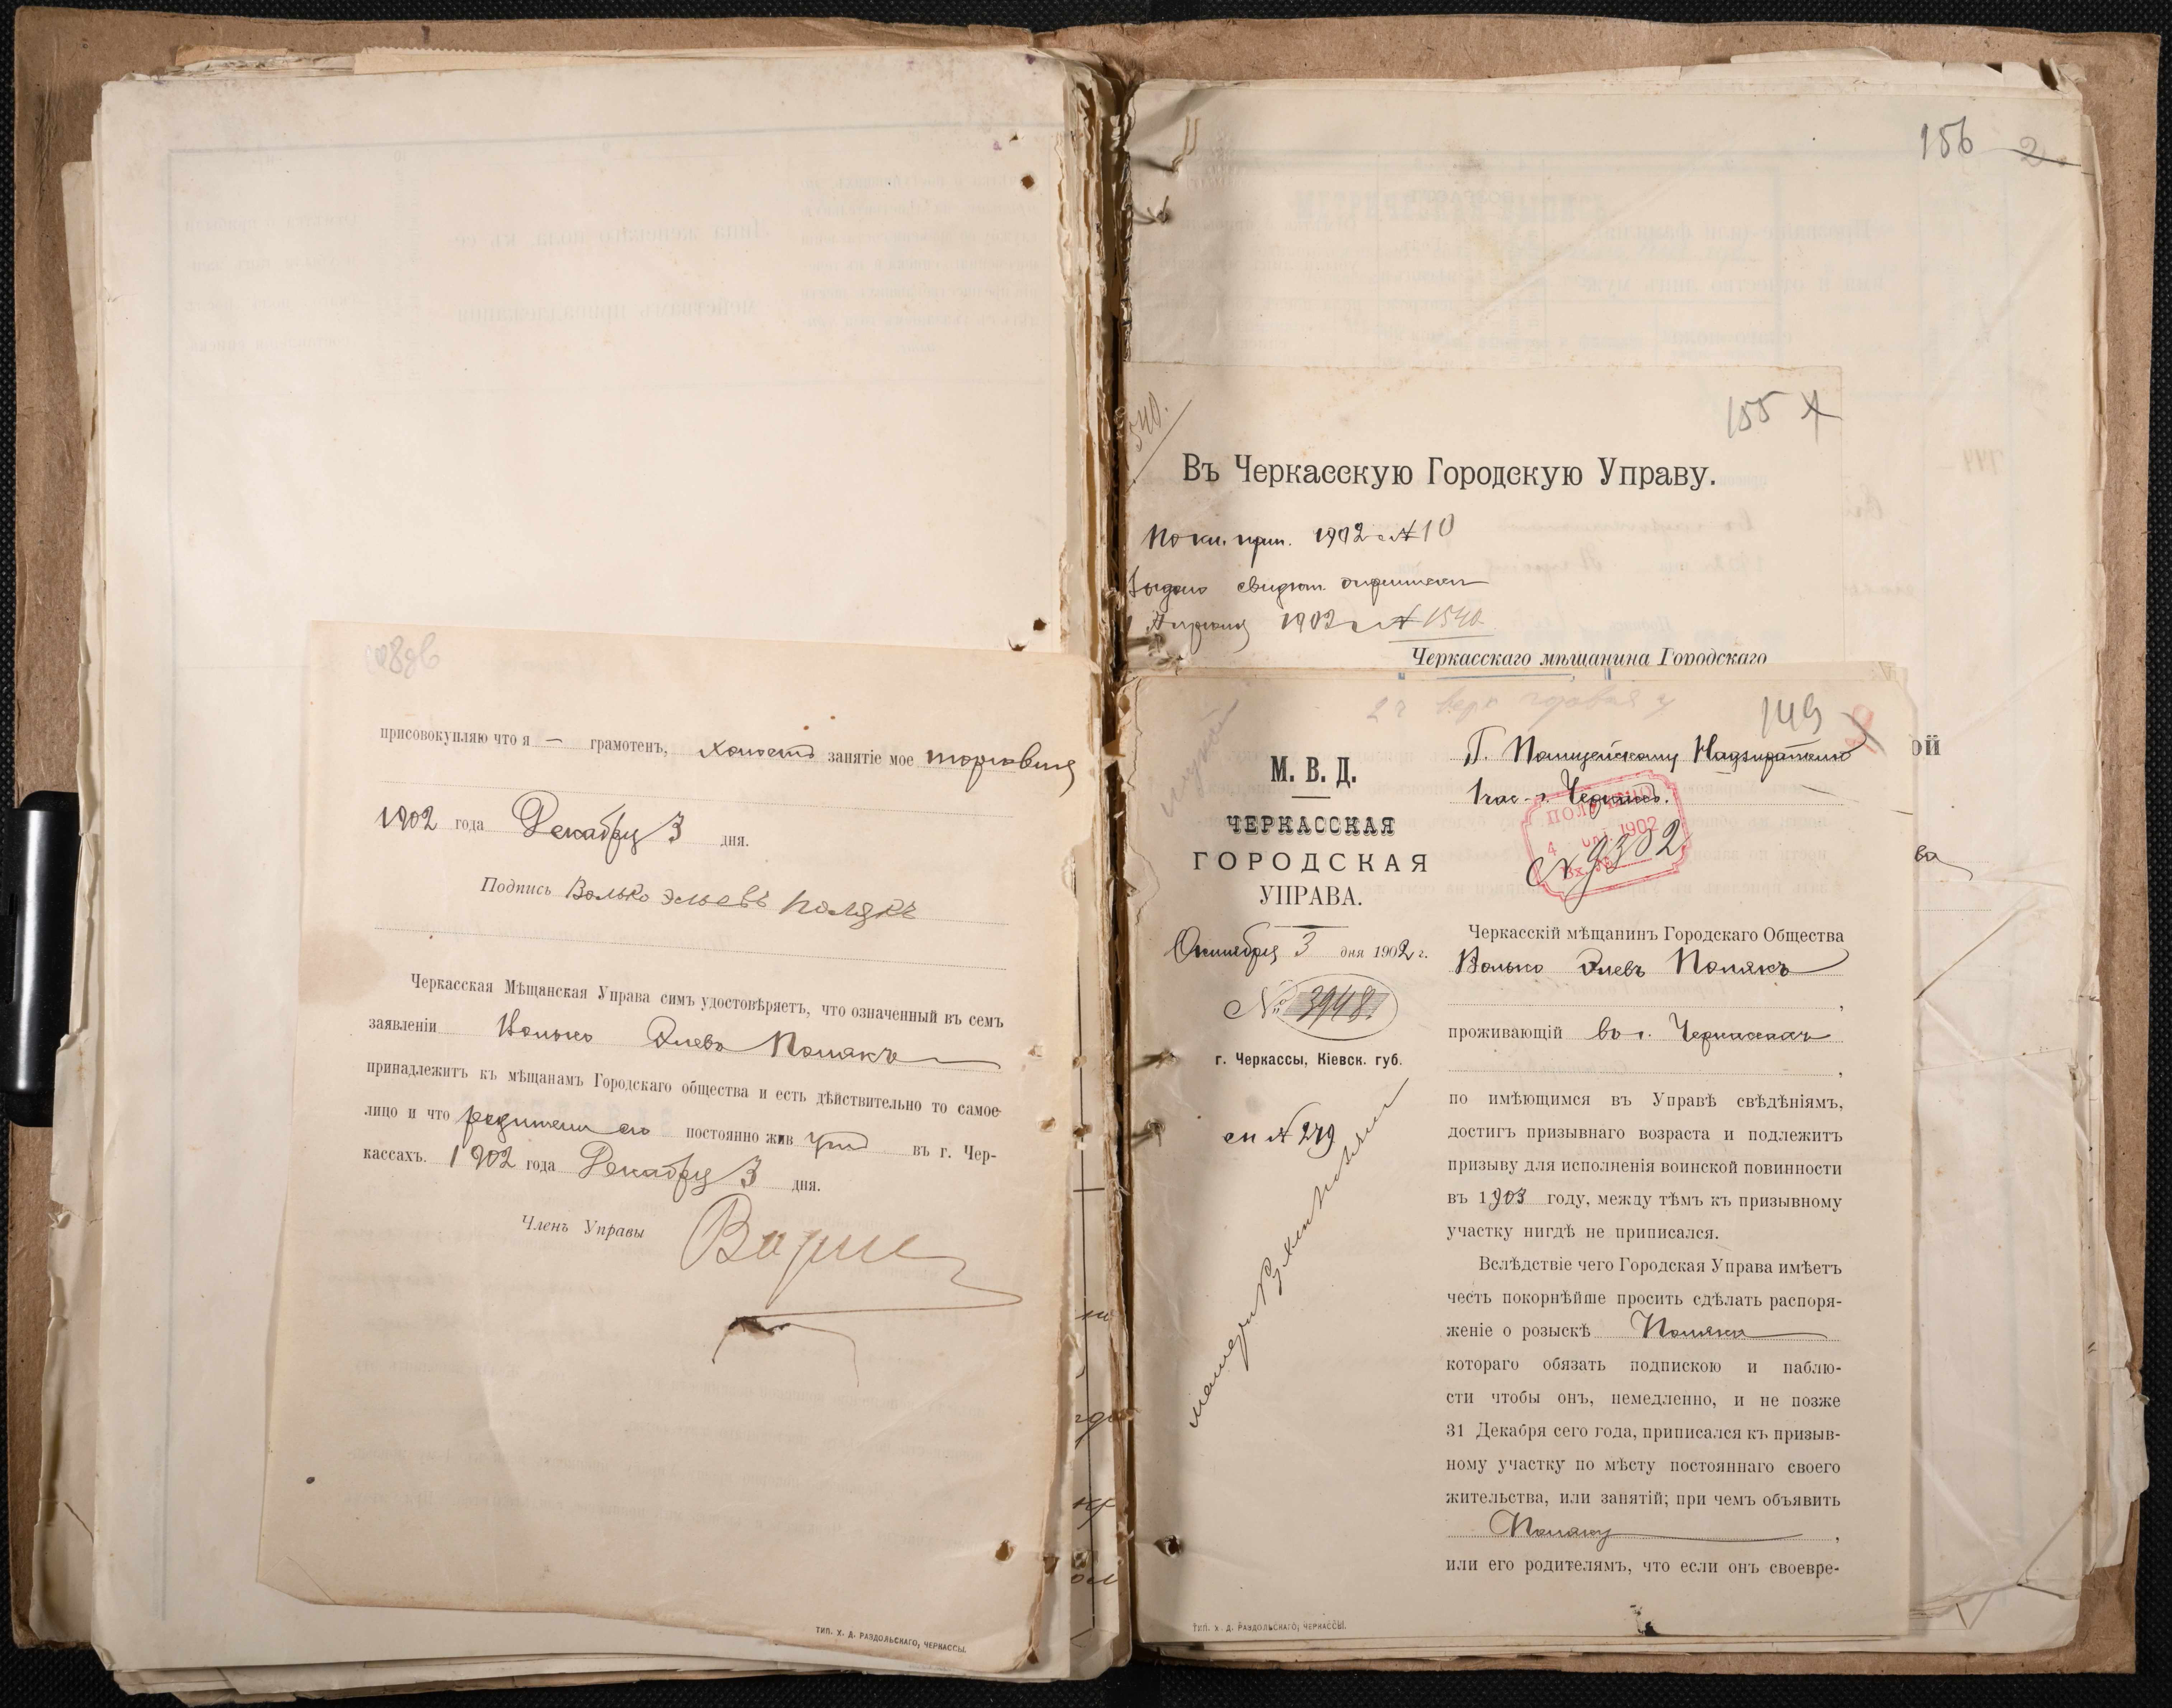 присовокупляю что я — грамотенъ, холостъ занятіе мое торговля
1902 года Декабря 3 дня.
Подпись Волько Эльевъ Полякъ
Черкасская Мѣщанская Управа симъ удостовѣряетъ, что означенный въ семъ
заявленіи Волько Элевъ Полякъ
принадлежитъ къ мѣщанамъ Городскаго общества и есть дѣйствительно то самое
лицо и что родители его постоянно жив утъ въ г. Чер-
кассахъ. 1902 года Декабря 3 дня.
Членъ Управы
ТИП. Х. Д. РАЗДОЛЬСКАГО, ЧЕРКАССЫ.
156 2
155
540.
Въ Черкасскую Городскую Управу.
По кн. прип. 1902 г. № 10
Выдано свидѣт. о приписки
1902 г. № 1540
Черкасскаго мѣщанина Городскаго
149
М. В. Д.
ЧЕРКАССКАЯ
ГОРОДСКАЯ
УПРАВА.
Октября 3 дня 1902 г.
№ 3948.
г. Черкассы, Кіевск. губ.
сп № 279
Г. Полицейскому Надзирателю
1 час. г. Черкассъ.
ПОЛУЧЕНО
4 ОКТ. 1902
Вх. №
№ 9382
Черкасскій мѣщанинъ Городскаго Общества
Волько Элевъ Полякъ
,
проживающій въ г. Черкассахъ
,
по имѣющимся въ Управѣ свѣдѣніямъ,
достигъ призывнаго возраста и подлежитъ
призыву для исполненія воинской повинности
въ 1903 году, между тѣмъ къ призывному
участку нигдѣ не приписался.
Вслѣдствіе чего Городская Управа имѣетъ
честь покорнѣйше просить сдѣлать распоря-
женіе о розыскѣ Поляка
котораго обязать подпискою и наблю-
сти чтобы онъ, немедленно, и не позже
31 Декабря сего года, приписался къ призыв-
ному участку по мѣсту постояннаго своего
жительства, или занятій; при чемъ объявить
Поляку ,
или его родителямъ, что если онъ своевре-
ТИП. Х. Д. РАЗДОЛЬСКАГО, ЧЕРКАССЫ.
ой
ва